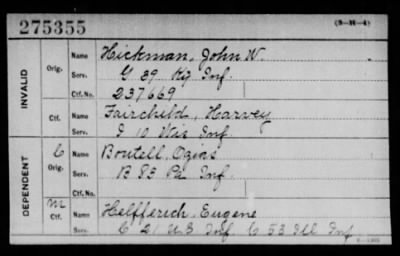 275355
(3-M-4)
INVALID
Orig.
Name Hickman, John W.
Serv. G 39 Ky Inf.
Ctf. No. 237669
Ctf.
Name Fairchild, Harvey
Serv. I 10 Wis Inf.
DEPENDENT
C
Orig.
Name Boutell,
Serv. B 83 Pa Inf.
Ctf. No.
M
Ctf.
Name Helfferich, Eugene
Serv. C 21 U.S Inf. C 53 Ill Inf